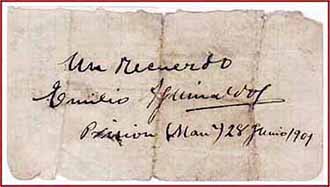 Un recuerdo
Emilio Aguinaldo
Prision (Man) 28 Junio 1901